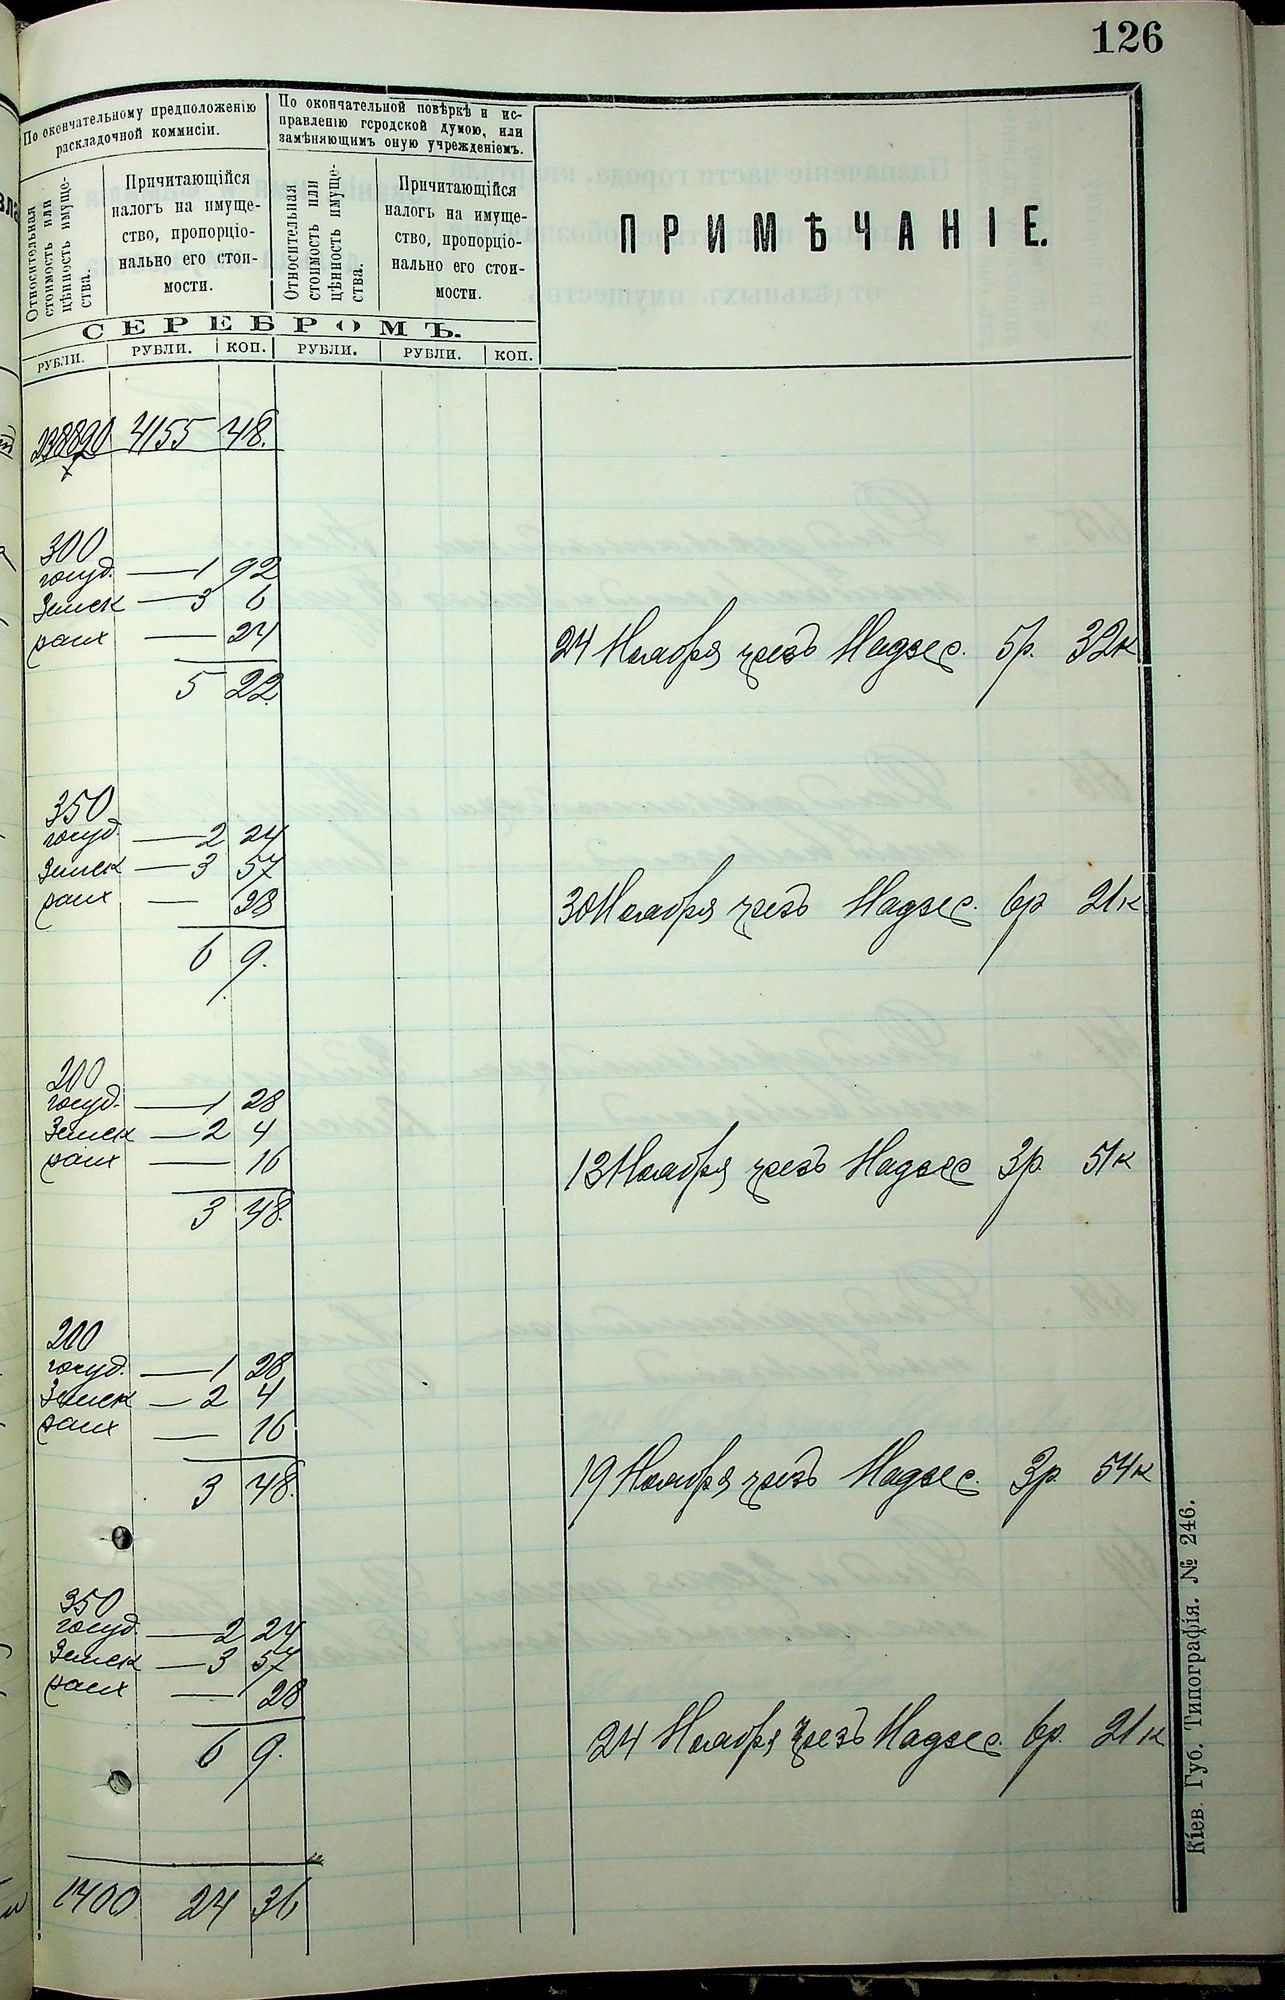 126
По окончательному предположенію
раскладочной коммисіи.
По окончательной повѣркѣ и ис-
правленію городской думою, или
замѣняющимъ оную учрежденіемъ.
Относительная
стоимость или
цѣнность имуще-
ства.
Причитающійся
налогъ на имуще-
ство, пропорціо-
нально его стои-
мости.
Относительная
стоимость или
цѣнность имуще-
ства.
Причитающійся
налогъ на имуще-
ство, пропорціо-
нально его стои-
мости.
ПРИМѢЧАНІЕ.
СЕРЕБРОМЪ.
РУБЛИ. РУБЛИ. КОП. РУБЛИ. РУБЛИ. КОП.
238820 4155 48.
300
госуд. — 1 92
Земск — 3 6
— 24
24 Ноября чрезъ Надзес. 5р. 32к
5 22.
350
госуд. — 2 24
Земск — 3 57
— 28
30 Ноября чрезъ Надзес. 6р 21к
6 9.
200
госуд. — 1 28
Земск — 2 4
— 16
13 Ноября чрезъ Надзес 3р. 51к
3 48.
200
госуд. — 1 28
Земск — 2 4
— 16
19 Ноября чрезъ Надзес. 3р. 54к
3 48.
350
госуд. — 2 24
Земск — 3 57
— 28
24 Ноября чрезъ Надзес. 6р. 21к
6 9.
1400 24 36
Кіев. Губ. Типографія. № 246.